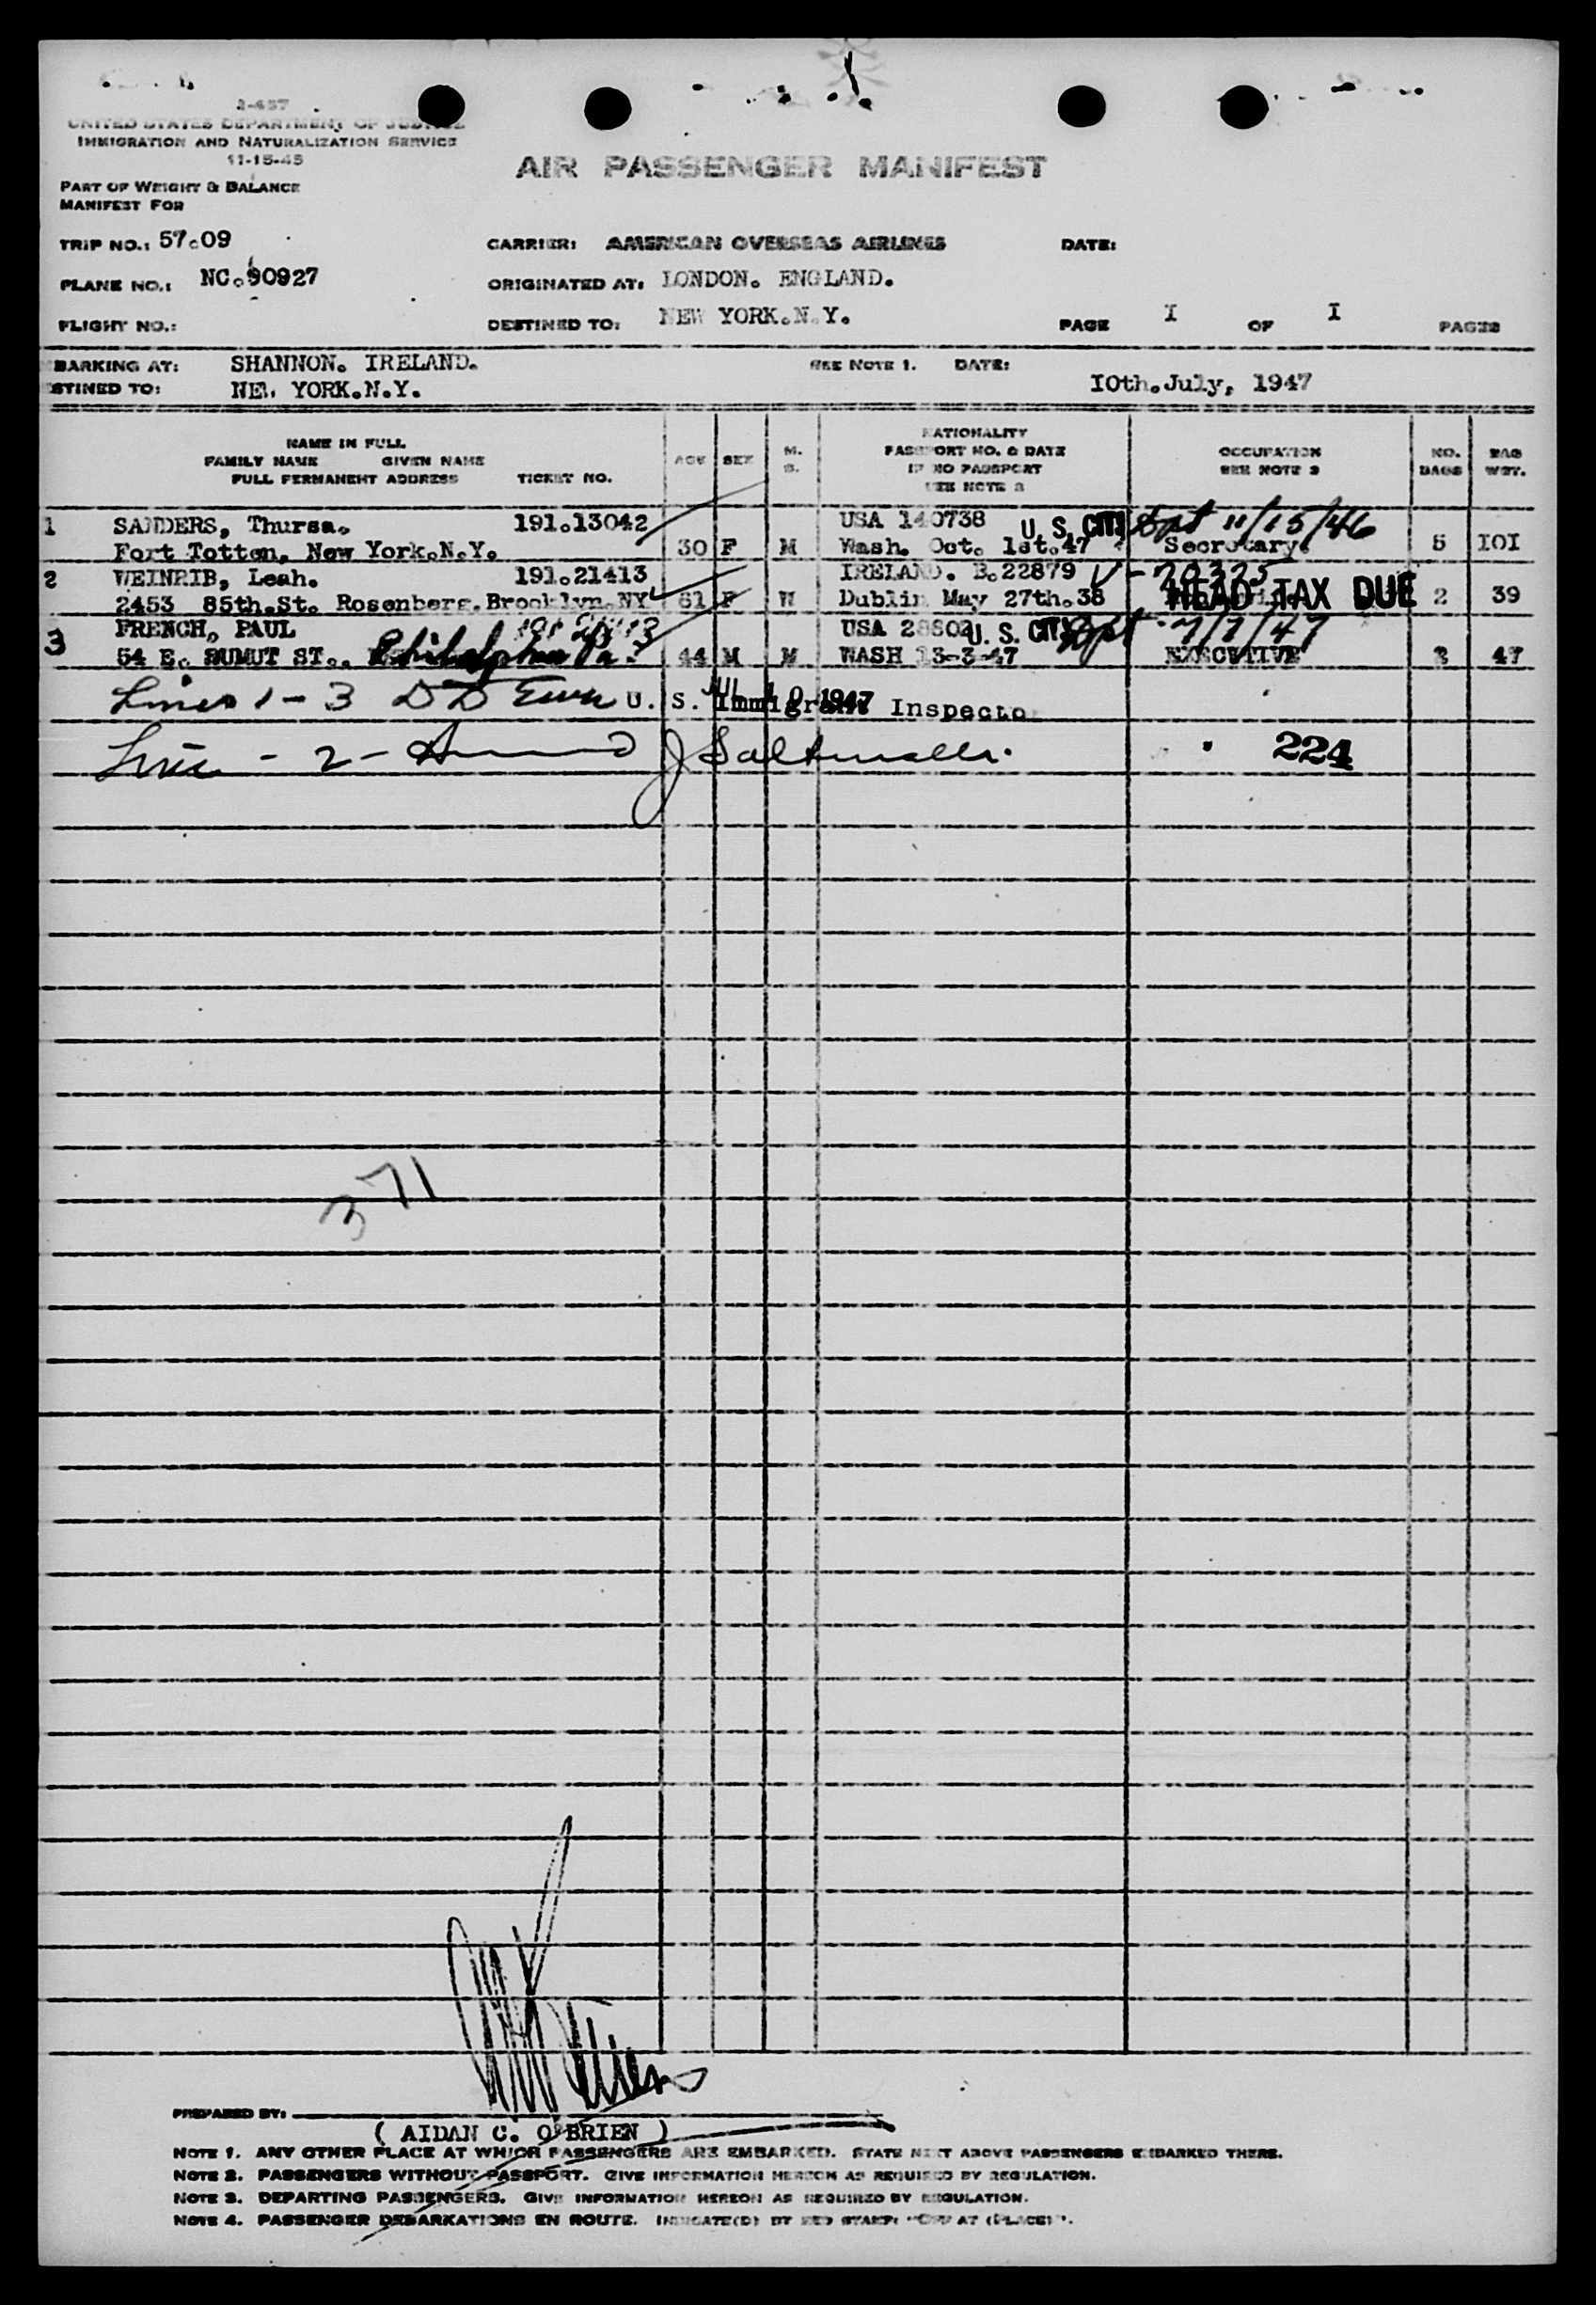 I-457
UNITED STATES DEPARTMENT OF JUSTICE
IMMIGRATION AND NATURALIZATION SERVICE
11-15-45
AIR PASSENGER MANIFEST
PART OF WEIGHT & BALANCE
MANIFEST FOR
TRIP NO.: 57.09 CARRIER: AMERICAN OVERSEAS AIRLINES DATE:
PLANE NO.: NC.90927 ORIGINATED AT: LONDON. ENGLAND.
FLIGHT NO.: DESTINED TO: NEW YORK.N.Y. PAGE I OF I PAGES
BARKING AT: SHANNON. IRELAND. SEE NOTE 1. DATE: 10th.July, 1947
STINED TO: NEW YORK.N.Y.
NAME IN FULL
FAMILY NAME GIVEN NAME
FULL PERMANENT ADDRESS TICKET NO. AGE SEX M. S. NATIONALITY PASSPORT NO. & DATE IF NO PASSPORT SEE NOTE 2 OCCUPATION SEE NOTE 3 NO. BAGS BAG WGT.
1 SANDERS, Thursa. 191.13042 USA 140738 U. S. CIT. 11/15/46
Fort Totten, New York.N.Y. 30 F M Wash. Oct. 1st.47 Secretary. 5 IOI
2 WEINRIB, Leah. 191.21413 IRELAND. B.22879 V-
2453 85th.St. Rosenberg.Brooklyn.NY 61 F W Dublin May 27th.38 HEAD TAX DUE 2 39
3 FRENCH, PAUL USA U. S. CIT. 7/7/47
54 E. ST.. Philadelphia Pa. 44 M M WASH 13-3-47 EXECUTIVE 2 47
Lines 1-3 U. S. Immigrant Inspector
JUL 10 1947
Line - 2 - J Saltmalli. 224
371
PREPARED BY:
( AIDAN C. O'BRIEN )
NOTE 1. ANY OTHER PLACE AT WHICH PASSENGERS ARE EMBARKED. STATE NEXT ABOVE PASSENGERS EMBARKED THERE.
NOTE 2. PASSENGERS WITHOUT PASSPORT. GIVE INFORMATION HEREON AS REQUIRED BY REGULATION.
NOTE 3. DEPARTING PASSENGERS. GIVE INFORMATION HEREON AS REQUIRED BY REGULATION.
NOTE 4. PASSENGER DEBARKATIONS EN ROUTE. INDICATE(D) BY RED STAMP: "OFF AT (PLACE)".